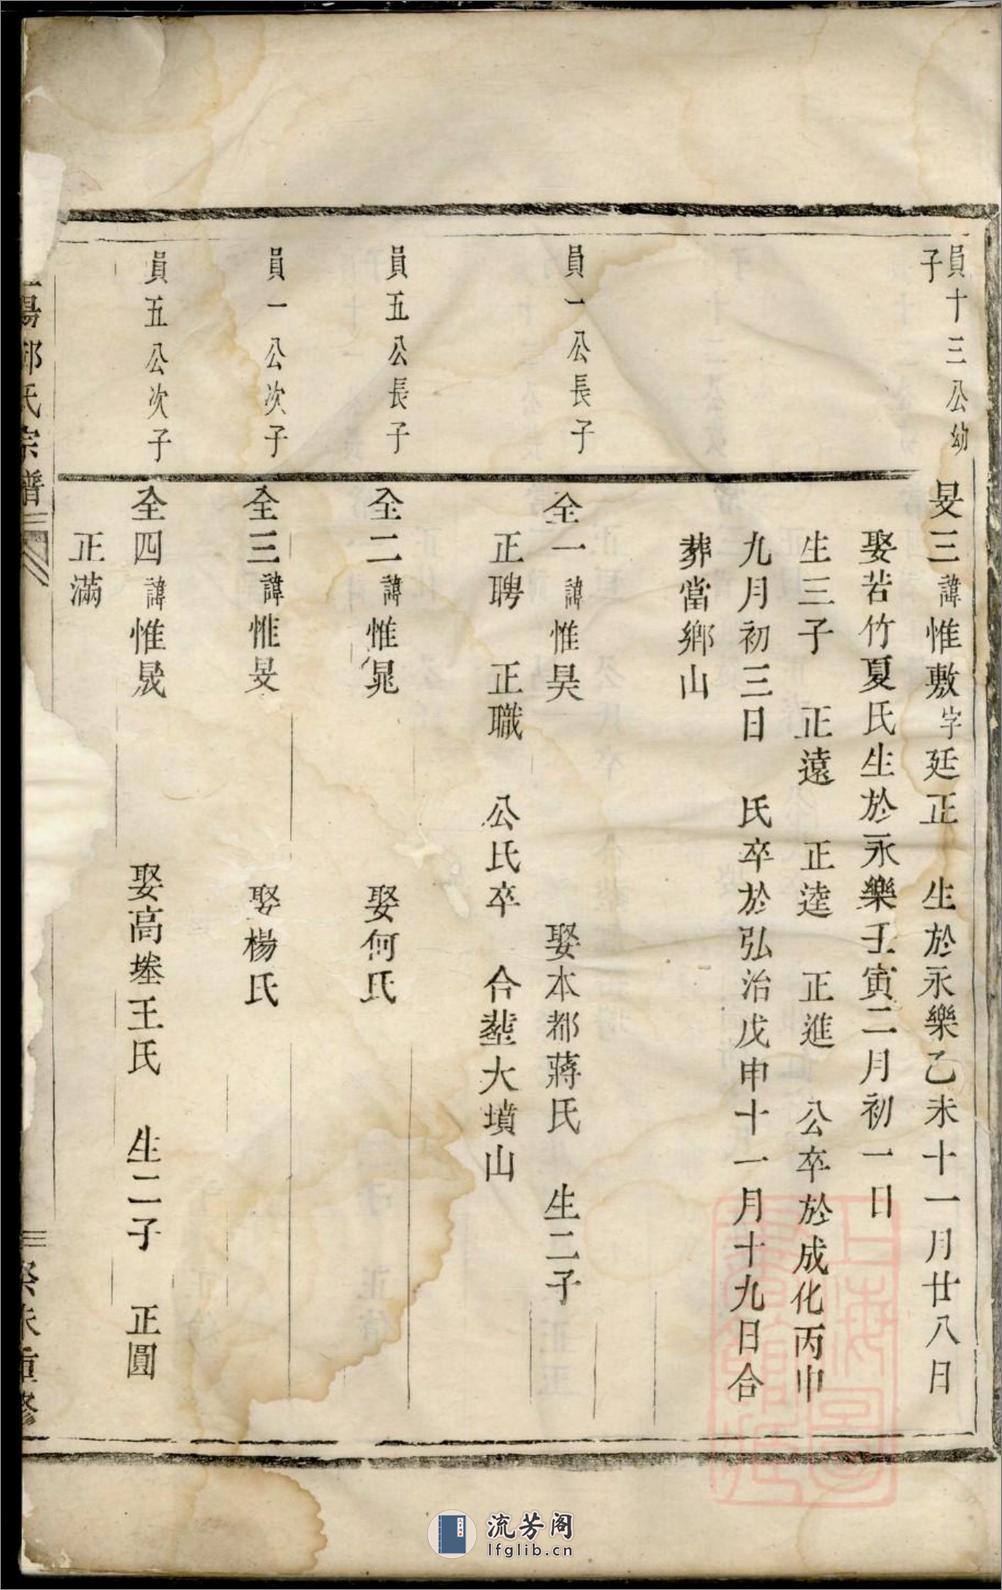 員十三公幼
子
旻三諱惟敷字廷正　生於永樂乙未十一月廿八日
娶若竹夏氏生於永樂壬寅二月初一日
生三子　正遠　正逵　正進　公卒於成化丙申
九月初三日　氏卒於弘治戊申十一月十九日合
葬當鄉山
員一公長子
全一諱惟昊　娶本都蔣氏　生二子
正聘　正職　公氏卒　合塟大墳山
員五公長子
全二諱惟晁　娶何氏
員一公次子
全三諱惟旻　娶楊氏
員五公次子
全四諱惟晟　娶高墐王氏　生二子　正圓
正滿
陽邱氏宗譜
癸未重修
流芳阁
lfglib.cn